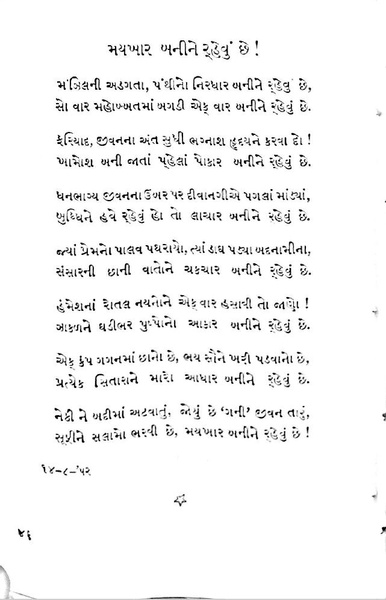 મયખાર બનીને ર્‌હેવું છે !
મંઝિલની અડગતા, પંથીનો નિરધાર બનીને ર્‌હેવું છે,
સો વાર મહોબ્બતમાં બગડી એક વાર બનીને ર્‌હેવું છે.
ફરિયાદ, જીવનના અંત સુધી ભગ્નાશ હૃદયને કરવા દો !
ખામોશ બની જાતાં પ્‌હેલાં પોકાર બનીને ર્‌હેવું છે.
ધનભાગ્ય જીવનના ઉંબર પર દીવાનગીએ પગલાં માંડ્યાં,
બુધ્ધિને હવે ર્‌હેવું હો તો લાચાર બનીને રહેવું છે.
જ્યાં પ્રેમનો પાલવ પથરાયો, ત્યાં ડાઘ પડ્યા બદનામીના,
સંસારની છાની વાતોને ચકચાર બનીને ર્‌હેવું છે.
હંમેશનાં રોતલ નયનોને એક વાર હસાવી તો જાણો !
ઝાકળને ઘડીભર પુષ્પોનો આકાર બનીને ર્‌હેવું છે.
એક કંપ ગગનમાં છાનો છે, ભય સૌને ખરી પડવાનો છે,
પ્રત્યેક સિતારાને મારો આધાર બનીને ર્‌હેવું છે.
નેકી ને બદીમાં અટવાતું, જોયું છે ‘ગની’ જીવન તારું,
સૂફીને સલામો ભરવી છે, મયખાર બનીને ર્‌હેવું છે !
૧૪-૮-’૫૨
૪૬